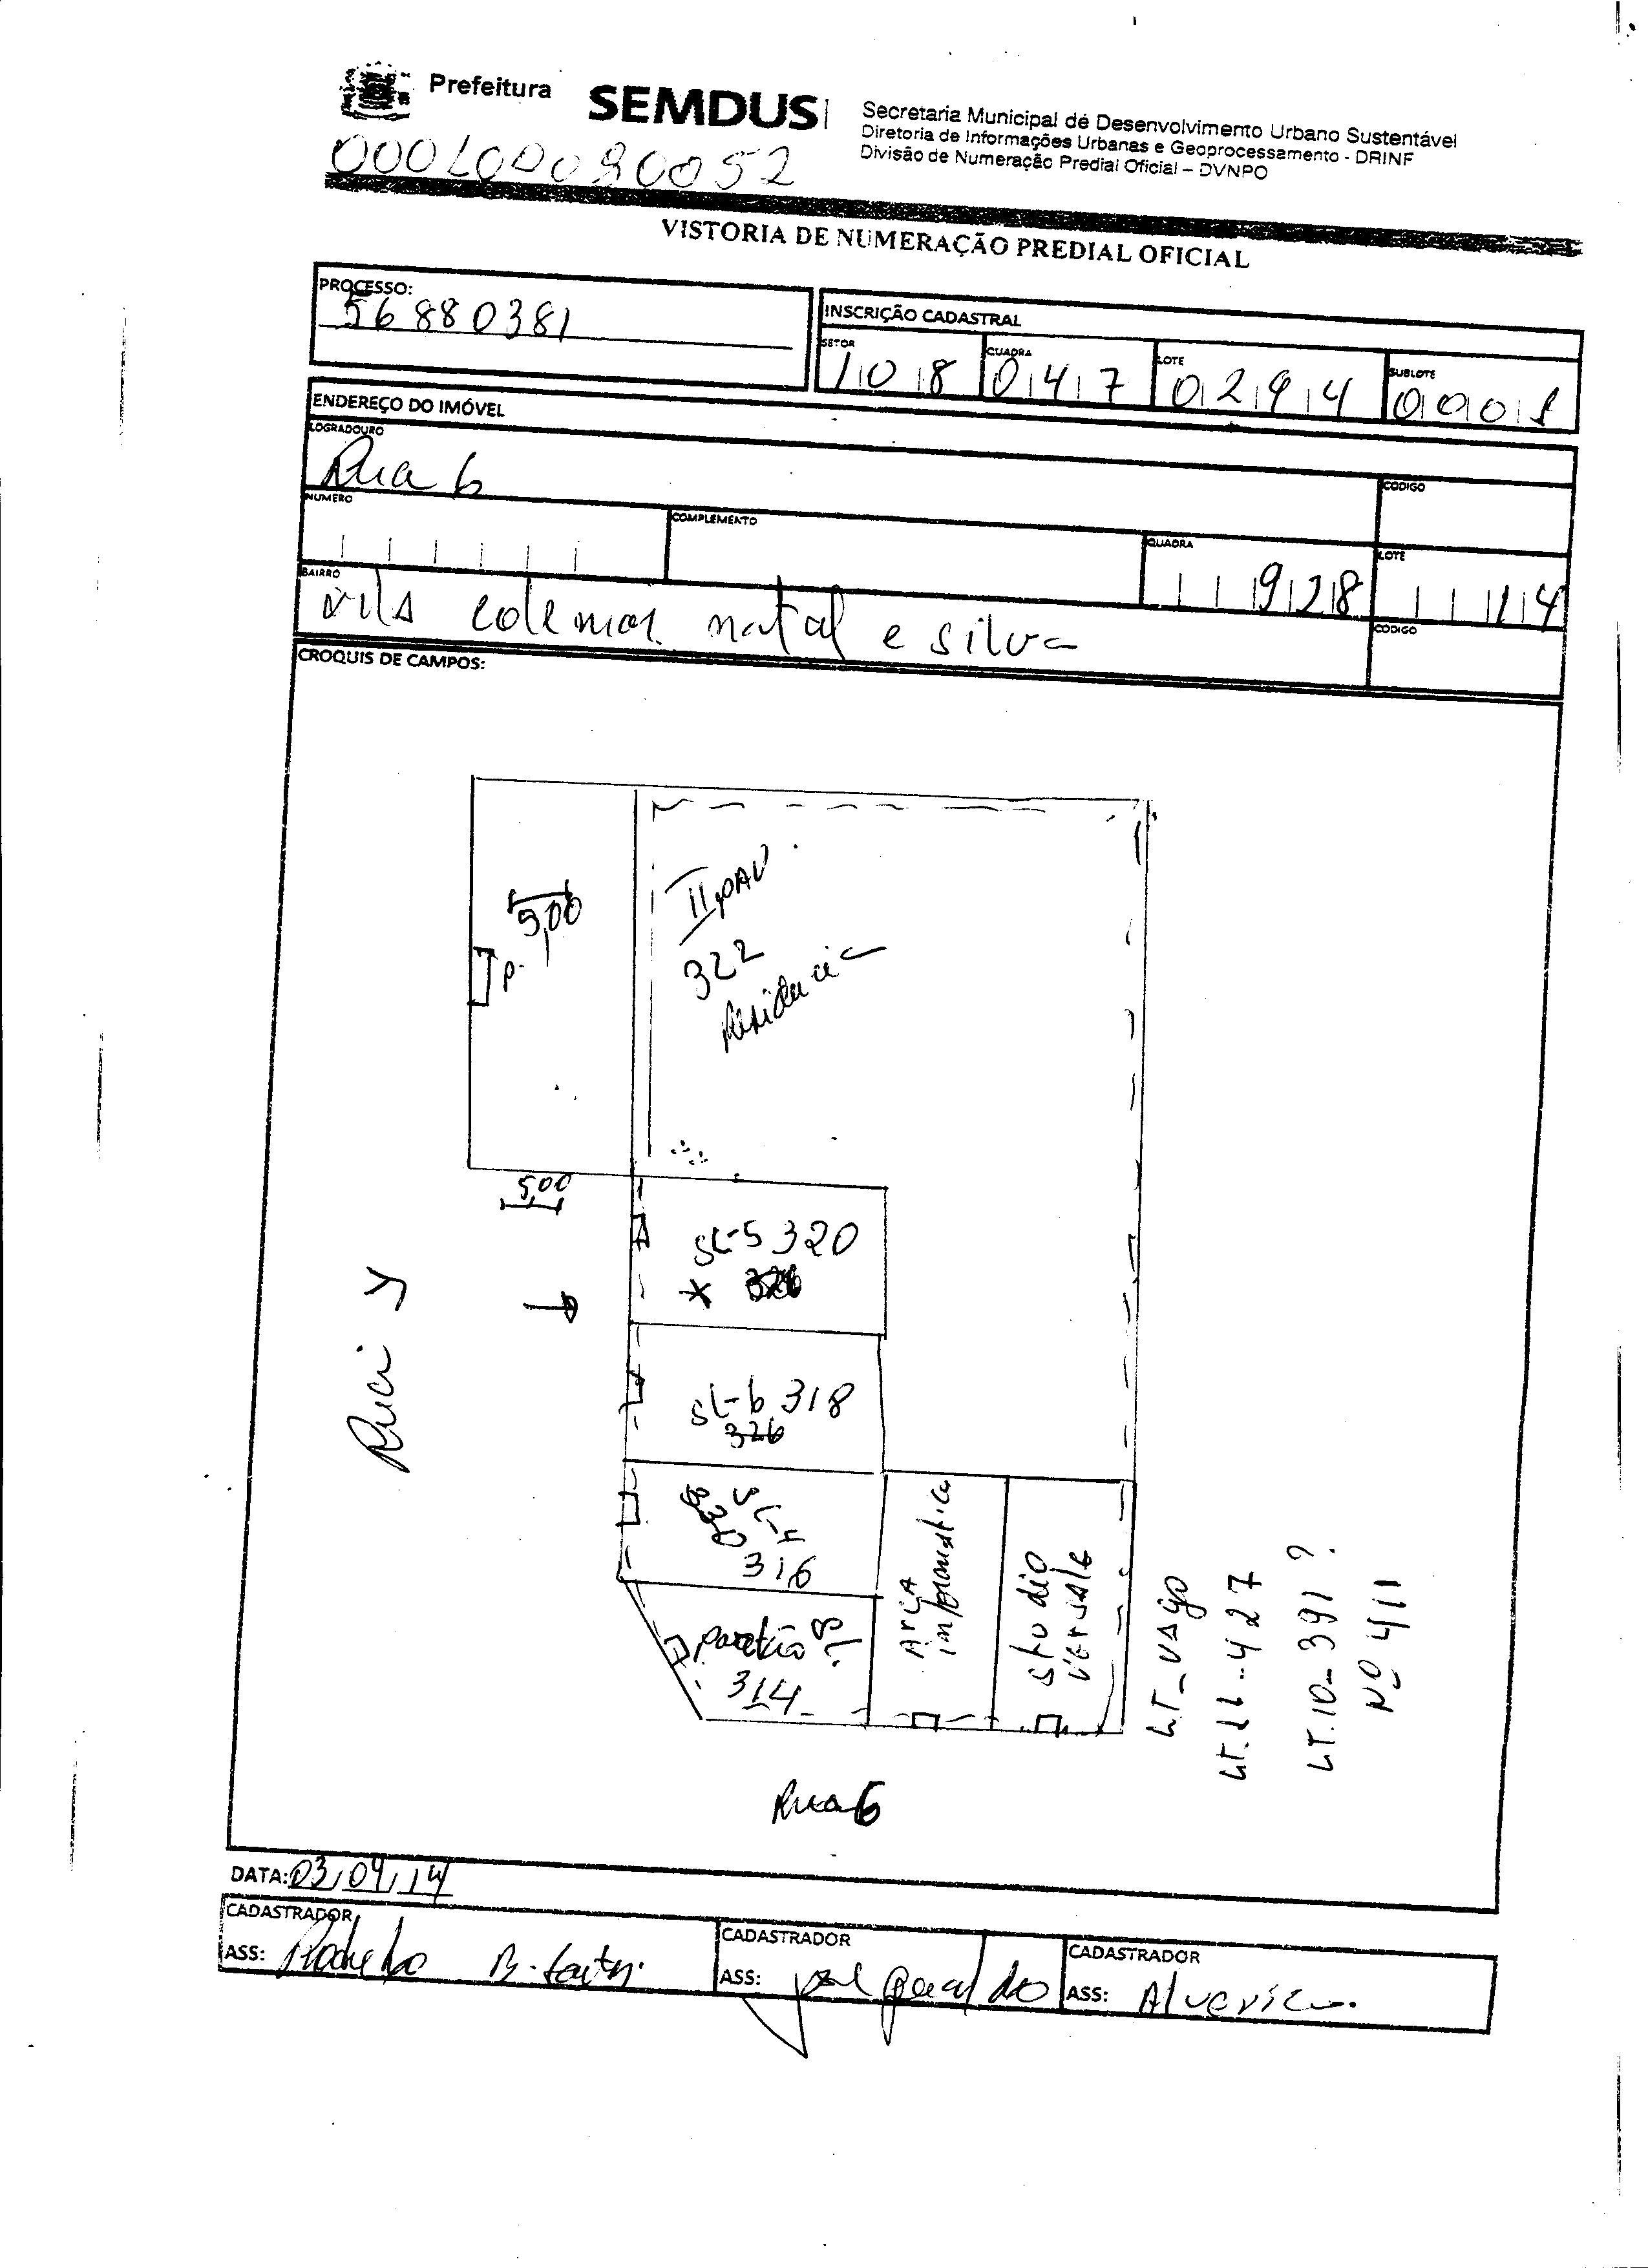 Prefeitura
SEMDUS
Secretaria Municipal de Desenvolvimento Urbano Sustentável
Diretoria de Informações Urbanas e Geoprocessamento - DRINF
Divisão de Numeração Predial Oficial – DVNPO
VISTORIA DE NUMERAÇÃO PREDIAL OFICIAL
PROCESSO:
56880381
INSCRIÇÃO CADASTRAL
SETOR
108
QUADRA
047
LOTE
0294
SUBLOTE
0001
ENDEREÇO DO IMÓVEL
LOGRADOURO
Rua 6
CODIGO
NUMERO
COMPLEMENTO
QUADRA
928
LOTE
14
BAIRRO
vila colemar natal e silva
CODIGO
CROQUIS DE CAMPOS:
5,00
P.
II pAV
322
Residencia
5,00
SL-5 320
*
SL-6 318
326
SL-4
330
316
314
Rua Y
ArCA
informatica
studio
versale
LT_VAgo
LT.11-427
LT.10-391?
Nº 411
Rua 6
DATA: 03/09/14
CADASTRADOR
ASS:
CADASTRADOR
ASS: geraldo
CADASTRADOR
ASS: